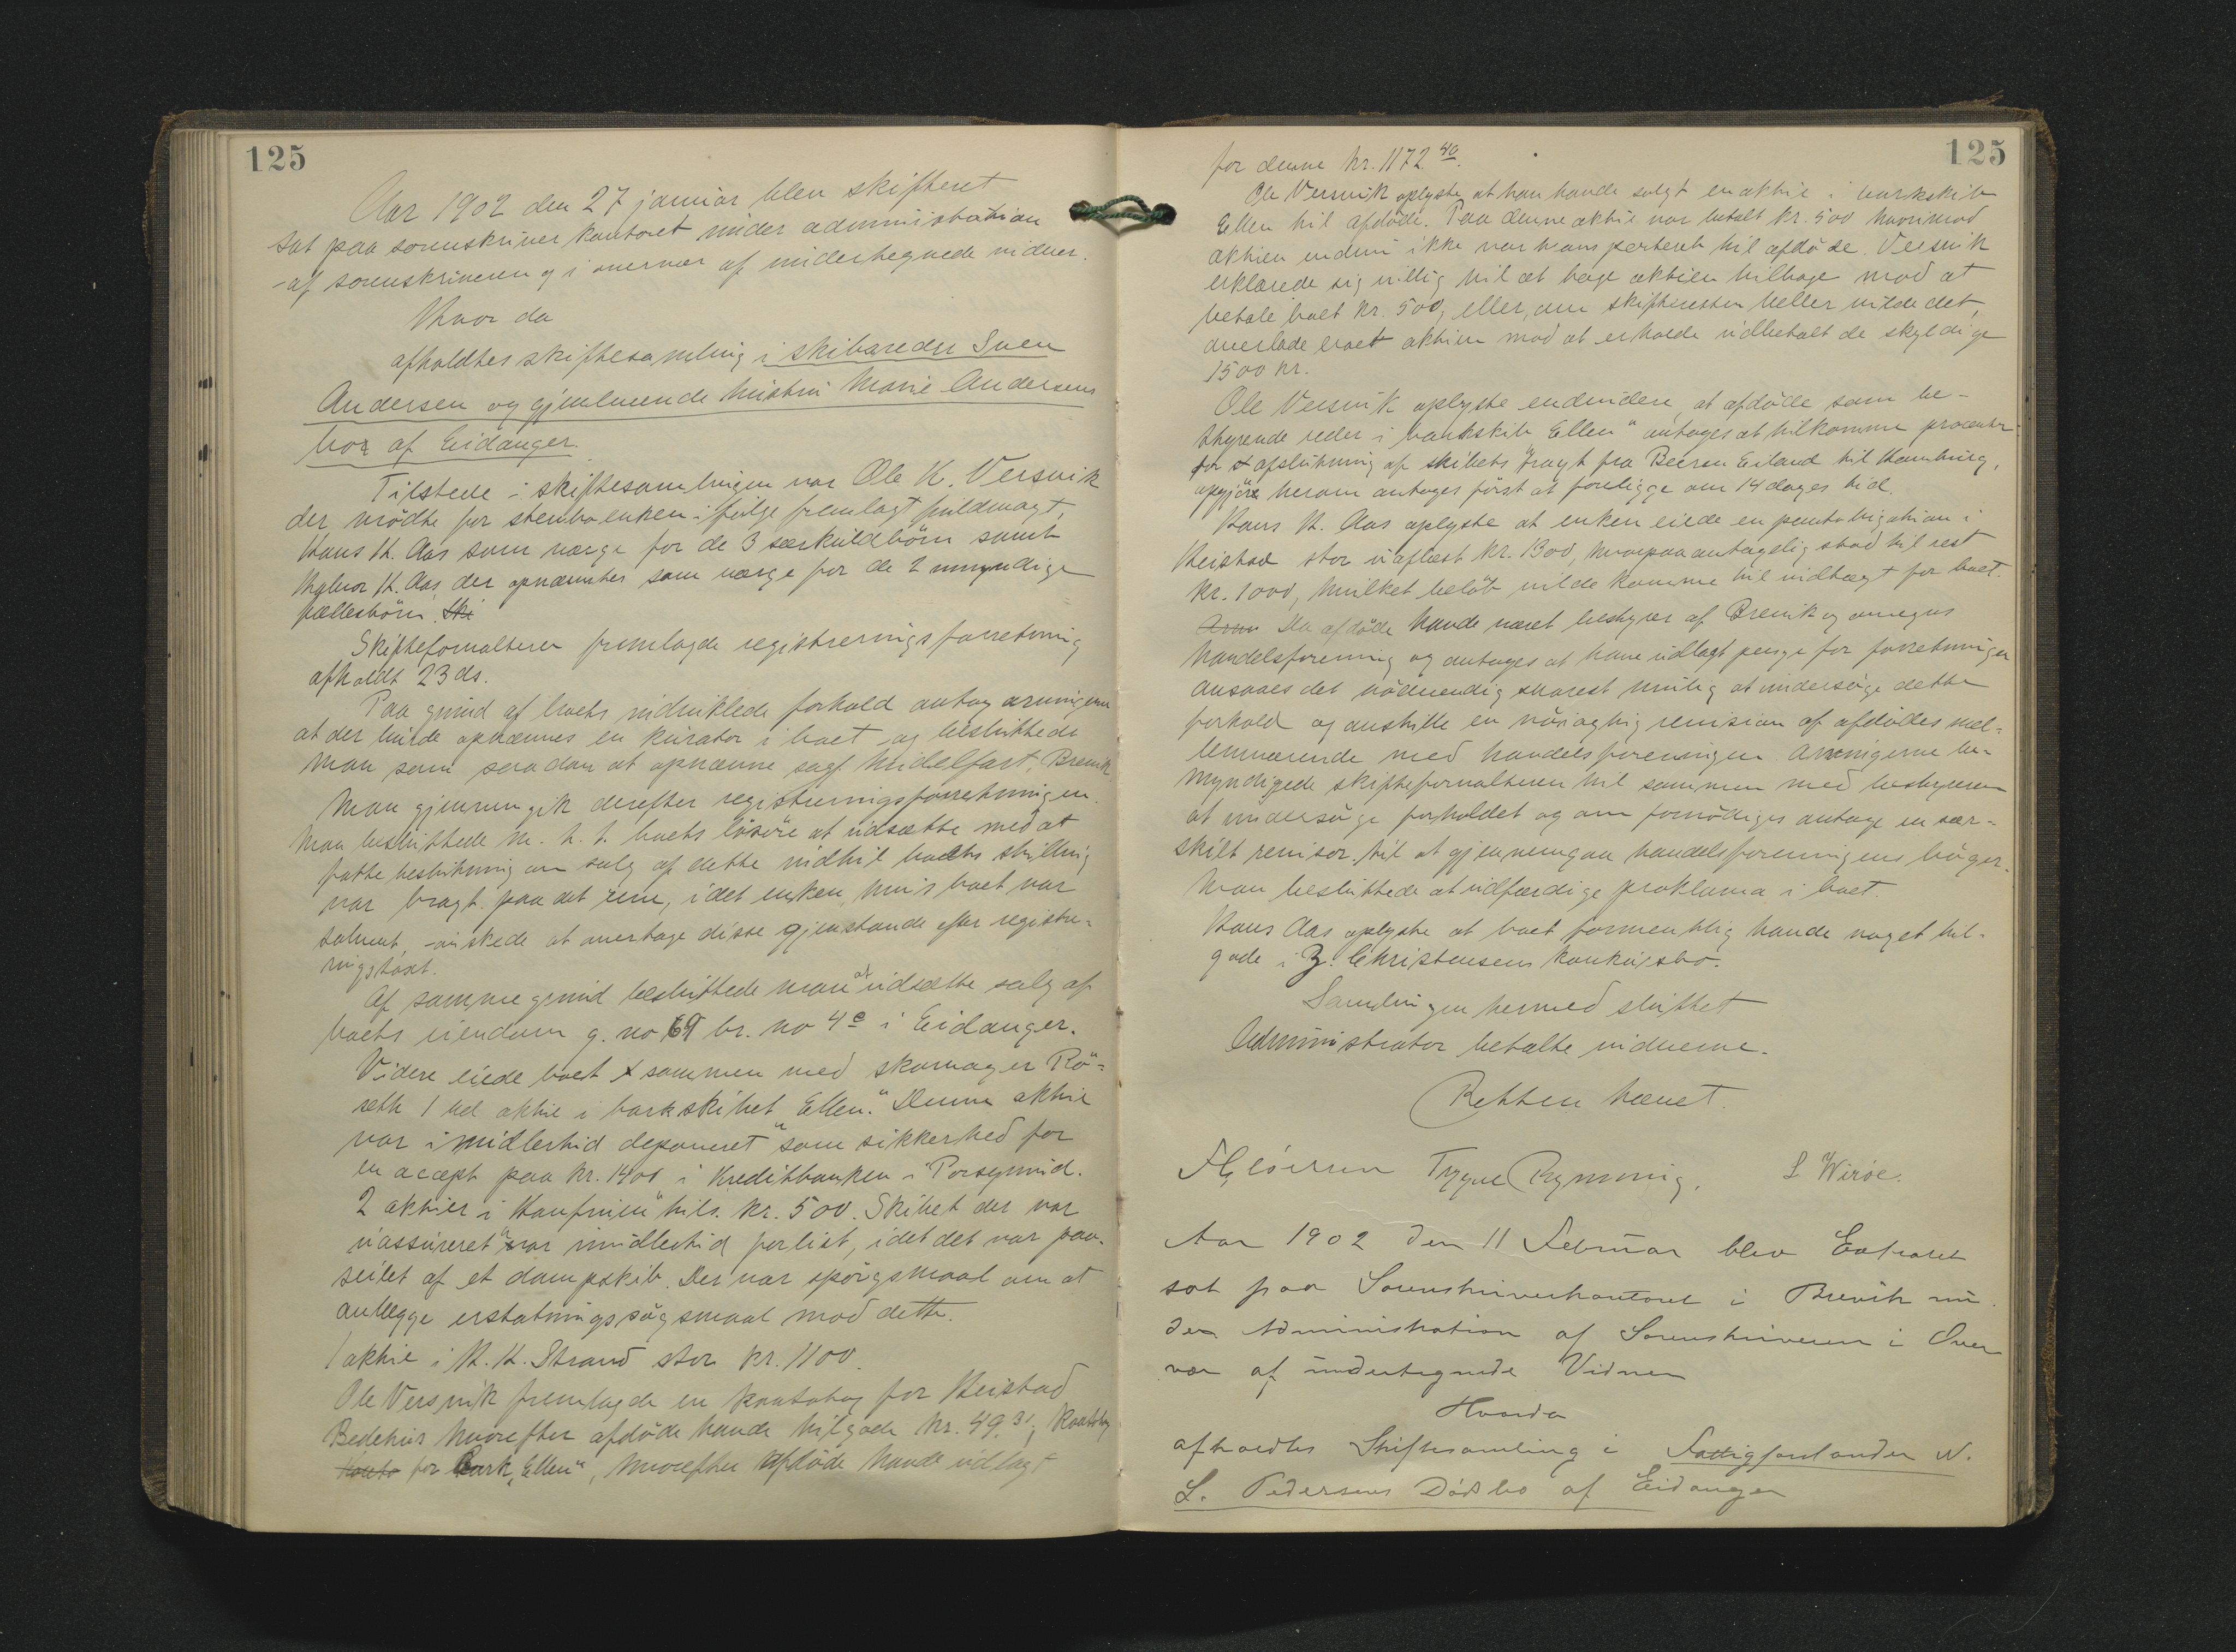 125
Aar 1902 den 27 januar blev skifteret
sat paa sorenskriverkontoret under administration
af sorenskriveren og i overvær af undertegnede vidner.
Hvor da
afholdtes skiftesamling i skibsreder Sven
Andersen og gjenlevende hustru Marie Andersens
bo af Eidanger.
Tilstede i skiftesamlingen var Ole K. Versvik
der mödte for stervboenken ifölge fremlagt fuldmagt,
Hans H. Aas som værge for de 3 særkuldbörn samt
Halvor H. Aas, der opnævntes som værge for de 2 umyndige
fællesbörn. Ski
Skifteforvalteren fremlagde registreringsforretning
afholdt 23 ds.
Paa grund af boets indviklede forhold antog arvingerne
at der burde opnævnes en kurator i boet og besluttede
man som saadan at opnævne sagf. Midelfart, Brevik
Man gjennemgik derefter registreringsforretningen.
Man besluttede m. h. t. boets lösöre at udsætte med at
fatte beslutning om salg af dette indtil boets stilling
var bragt paa det rene, idet enken, hvis boet var
solvent, önskede at overtage disse gjenstande efter registre-
ringstaxt.
Af samme grund besluttede man at udsætte salg af
boets eiendom g. no 69 br. no 4c i Eidanger.
Videre eiede boet sammen med skomager Rö-
seth 1 hel aktie i barkskibet "Ellen". Denne aktie
var imidlertid deponeret som sikkerhed for
en accept paa kr. 1400 i Kreditbanken i Porsgrund.
2 aktier i "Havfruen" tils. kr. 500. Skibet der var
uassureret var imidlertid forlist, idet det var paa-
seilet af et dampskib. Der var spörgsmaal om at
anlægge erstatningssögsmaal mod dette.
1 aktie i K. K. Strand stor kr. 1100.
Ole Versvik fremlagde en kontobog for Heistad
Bedehus hvorefter afdöde havde tilgode kr. 49.31, kontobog
Konto for Bark "Ellen", hvorefter afdöde havde udlagt
125
for denne kr. 1172.40.
Ole Versvik oplyste, at han havde solgt en aktie i barkskib
Ellen til afdöde. Paa denne aktie var betalt kr. 500 hvorimod
aktien endnu ikke var transporteret til afdöde. Versvik
erklærede sig villig til at tage aktien tilbage mod at
betale boet kr. 500, eller, om skifteretten heller vilde det,
overlade boet aktien mod at erholde udbetalt de skyldige
1500 kr.
Ole Versvik oplyste endvidere, at afdöde som be-
styrende reder i barkskib "Ellen" antages at tilkomme procenter
for afslutning af skibets fragt fra Beeren Eiland til Hamburg,
opgjöre herom antages först at foreligge om 14 dages tid.
Hans H. Aas oplyste at enken eiede en pantobligation i
Heistad stor uaflæst kr. 1300, hvorpaa antagelig stod til rest
kr. 1000, hvilket belöb vilde komme til indtægt for boet.
Da afdöde havde været bestyrer af Brevik og omegns
handelsforening og antages at have udlagt penge for forretningen
ansaaes det nödvendig snarest mulig at undersöge dette
forhold og anstille en nöiagtig revision af afdödes mel-
lemværende med handelsforeningen. Arvingerne be-
myndigede skifteforvalteren til sammen med bestyreren
at undersöge forholdet og om fornödiges antage en sær-
skilt revisor til at gjennemgaa handelsforeningens böger.
Man besluttede at udfærdige proklama i boet.
Hans Aas oplyste at boet formentlig havde noget til-
gode i Z. Christensens konkursbo.
Samlingen hermed sluttet
Administrator betalte vidnerne.
Retten hævet.
Trygve Rynning. L Wiröe.
Aar 1902 den 11 Februar blev Extraret
sat paa Sorenskriverkontoret i Brevik un-
der Administration af Sorenskriveren i Over-
vær af undertegnede Vidner
Hvorda
afholdtes Skiftesamling i Fattigforstander N.
L. Pedersens Dödsbo af Eidanger